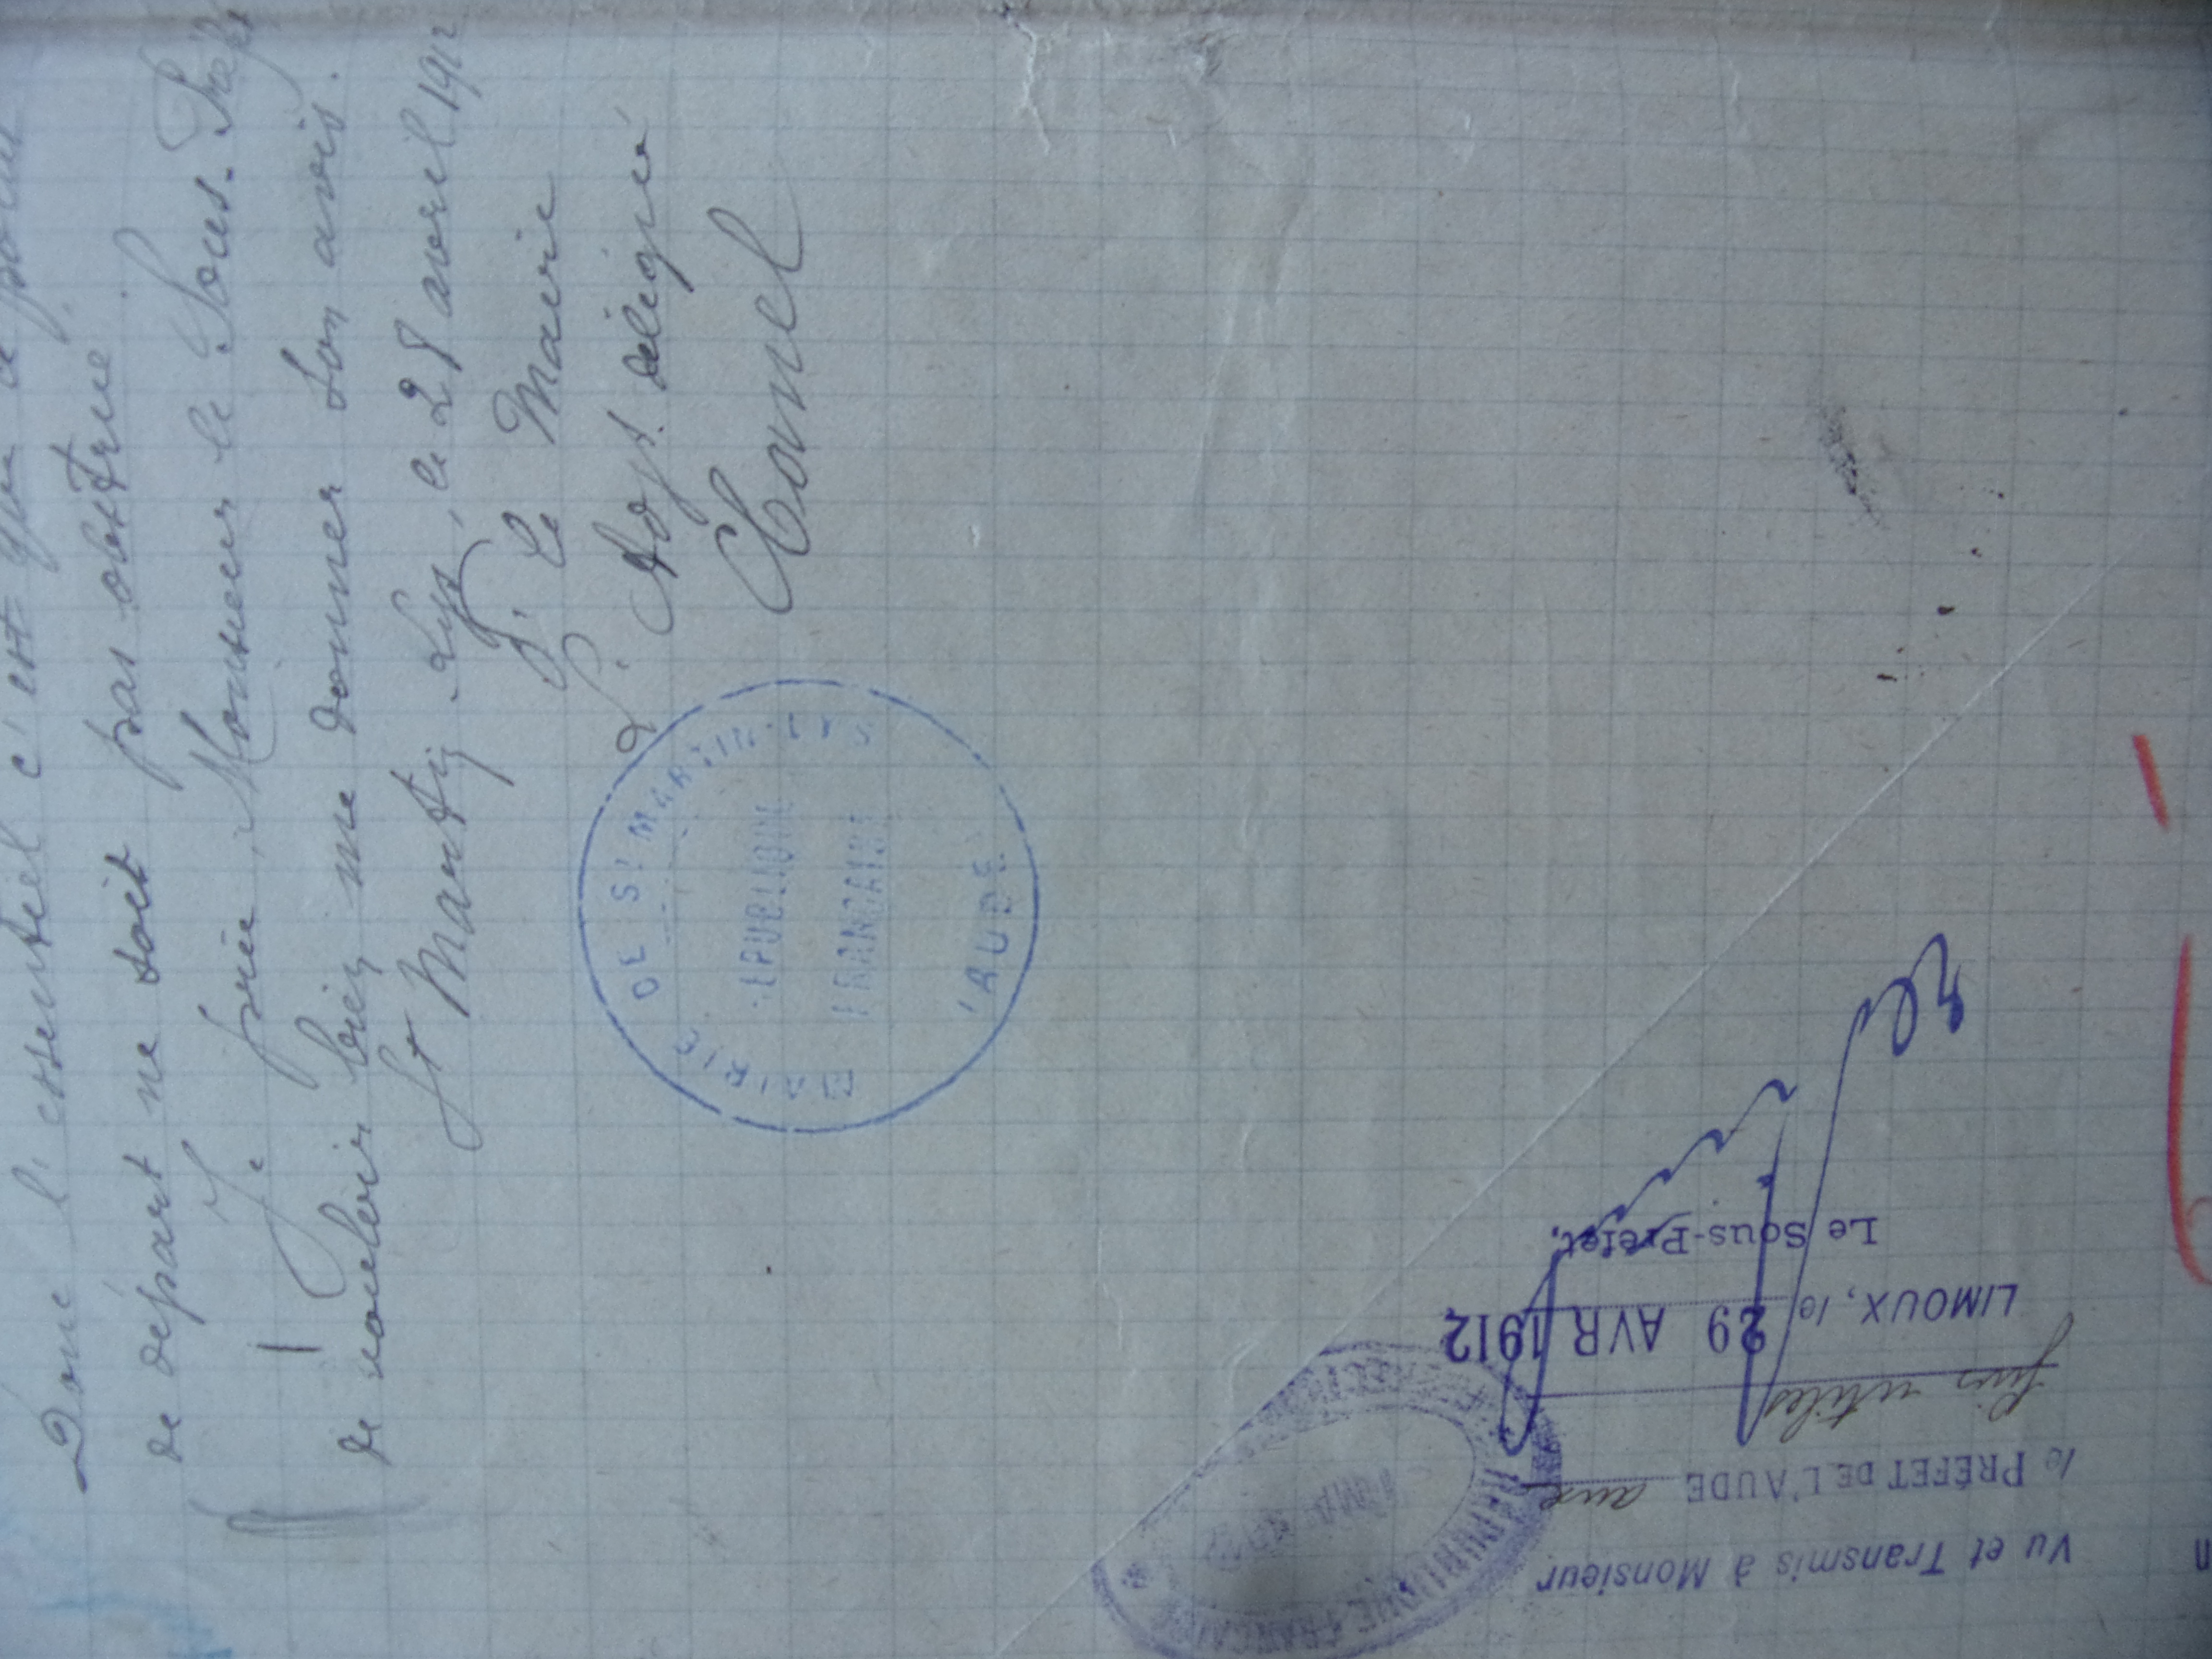 Donc l'essentiel c'est que ce point
de départ ne soit pas obstrué.
Je prie Monsieur le Sous-Préfet
de vouloir bien me donner son avis.
St Martin-Lys, le 28 avril 1912
Pr le Maire
L' Adjt. délégué
Canel
MAIRIE DE St MARTIN-LYS
REPUBLIQUE
FRANCAISE
(AUDE)
REPUBLIQUE FRANCAISE
Vu et Transmis à Monsieur
le PRÉFET DE L'AUDE aux
fins utiles
LIMOUX, le 29 AVR 1912
Le Sous-Préfet,